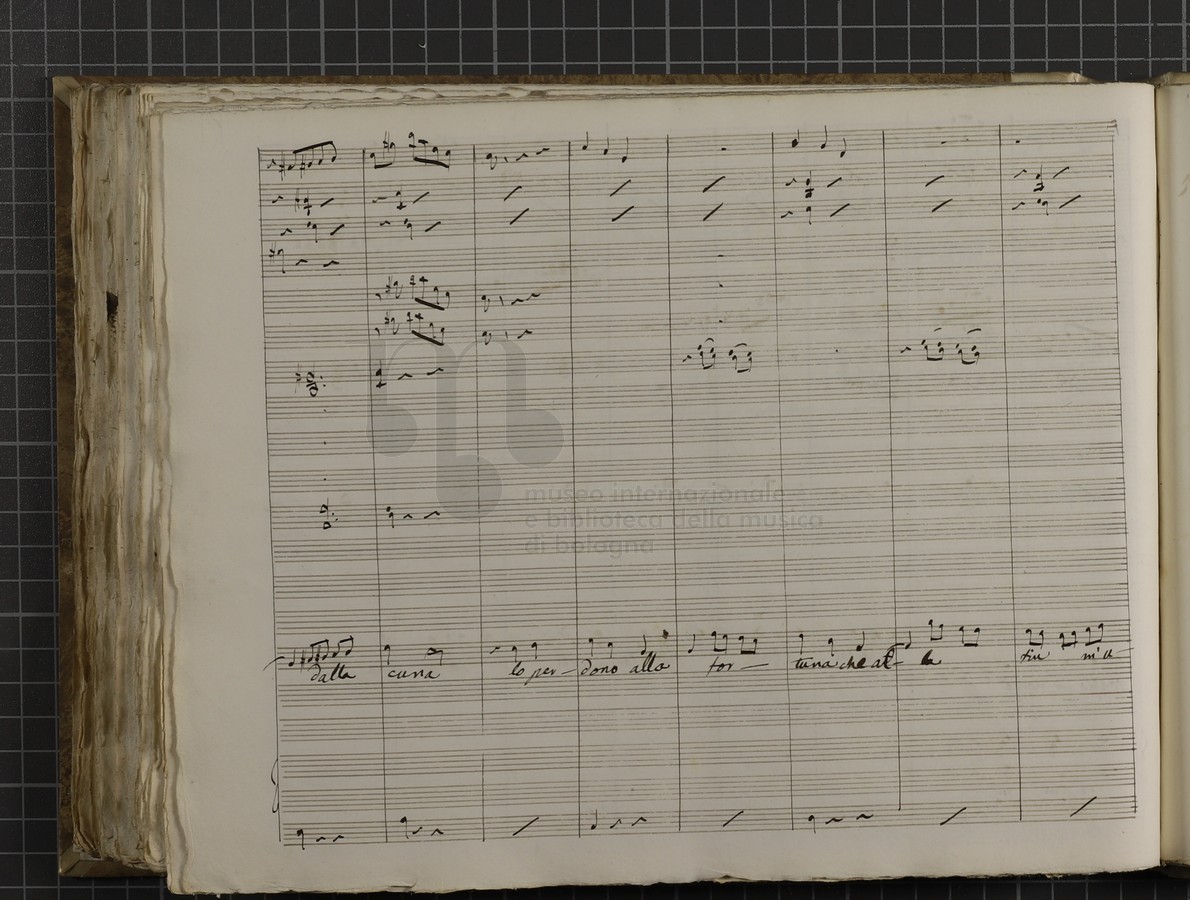 museo internazionale
e biblioteca della musica
di bologna
dalla cuna lo per- dono alla for- tuna che al- la fin m'a-